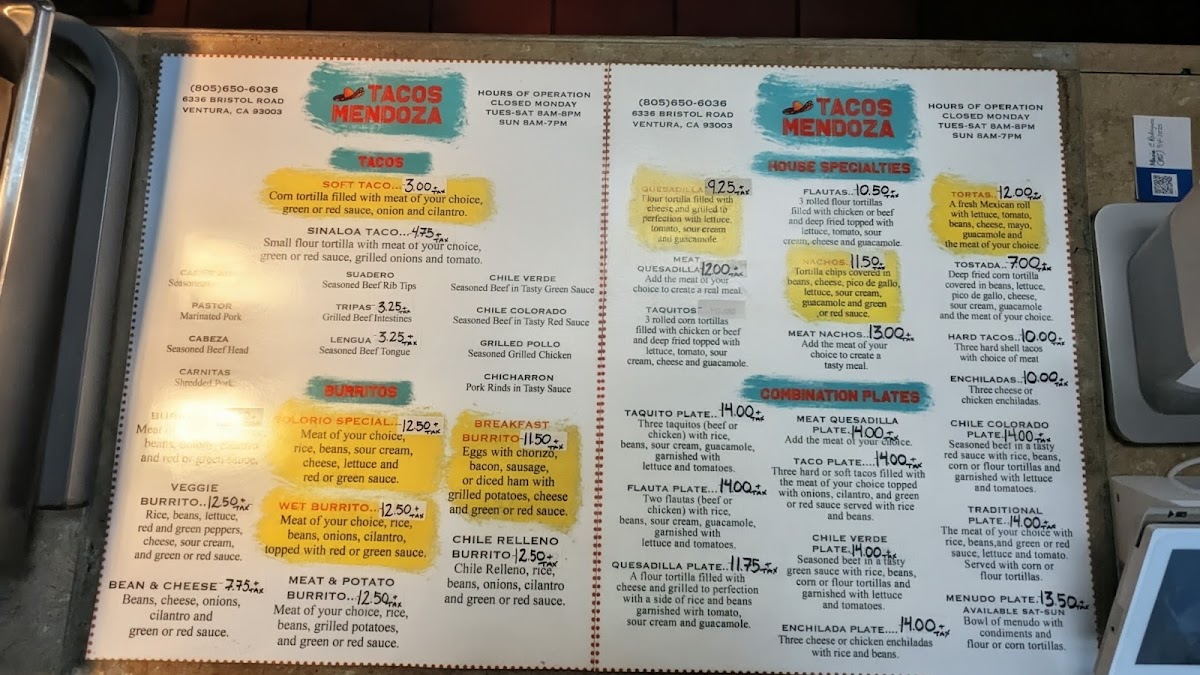 (805)650-6036
6336 BRISTOL ROAD
VENTURA, CA 93003
TACOS
MENDOZA
HOURS OF OPERATION
CLOSED MONDAY
TUES-SAT 8AM-8PM
SUN 8AM-7PM
TACOS
SOFT TACO...3.00+TAX
Corn tortilla filled with meat of your choice,
green or red sauce, onion and cilantro.
SINALOA TACO...4.75+TAX
Small flour tortilla with meat of your choice,
green or red sauce, grilled onions and tomato.
PASTOR
Marinated Pork
CABEZA
Seasoned Beef Head
CARNITAS
Shredded Pork
SUADERO
Seasoned Beef Rib Tips
TRIPAS 3.25+TAX
Grilled Beef Intestines
LENGUA 3.25+TAX
Seasoned Beef Tongue
CHILE VERDE
Seasoned Beef in Tasty Green Sauce
CHILE COLORADO
Seasoned Beef in Tasty Red Sauce
GRILLED POLLO
Seasoned Grilled Chicken
CHICHARRON
Pork Rinds in Tasty Sauce
BURRITOS
beans, onions, cilantro
and red or green sauce.
VEGGIE
BURRITO...12.50+TAX
Rice, beans, lettuce,
red and green peppers,
cheese, sour cream,
and green or red sauce.
BEAN & CHEESE 7.75+TAX
Beans, cheese, onions,
cilantro and
green or red sauce.
SPECIAL...12.50+TAX
Meat of your choice,
rice, beans, sour cream,
cheese, lettuce and
red or green sauce.
WET BURRITO...12.50+TAX
Meat of your choice, rice,
beans, onions, cilantro,
topped with red or green sauce.
MEAT & POTATO
BURRITO...12.50+TAX
Meat of your choice, rice,
beans, grilled potatoes,
and green or red sauce.
BREAKFAST
BURRITO 11.50+TAX
Eggs with chorizo,
bacon, sausage,
or diced ham with
grilled potatoes, cheese
and green or red sauce.
CHILE RELLENO
BURRITO 12.50+TAX
Chile Relleno, rice,
beans, onions, cilantro
and green or red sauce.
(805)650-6036
6336 BRISTOL ROAD
VENTURA, CA 93003
TACOS
MENDOZA
HOURS OF OPERATION
CLOSED MONDAY
TUES-SAT 8AM-8PM
SUN 8AM-7PM
HOUSE SPECIALTIES
QUESADILLA 9.25+TAX
Flour tortilla filled with
cheese and grilled to
perfection with lettuce,
tomato, sour cream
and guacamole
MEAT
QUESADILLA 12.00+TAX
Add the meat of your
choice to create a real meal.
TAQUITOS
3 rolled corn tortillas
filled with chicken or beef
and deep fried topped with
lettuce, tomato, sour
cream, cheese and guacamole.
FLAUTAS..10.50+TAX
3 rolled flour tortillas
filled with chicken or beef
and deep fried topped with
lettuce, tomato, sour
cream, cheese and guacamole.
NACHOS 11.50+TAX
Tortilla chips covered in
beans, cheese, pico de gallo,
lettuce, sour cream,
guacamole and green
or red sauce.
MEAT NACHOS 13.00+TAX
Add the meat of your
choice to create a
tasty meal.
TORTAS 12.00+TAX
A fresh Mexican roll
with lettuce, tomato,
beans, cheese, mayo,
guacamole and
the meat of your choice.
TOSTADA 7.00+TAX
Deep fried corn tortilla
covered in beans, lettuce,
pico de gallo, cheese,
sour cream, guacamole
and the meat of your choice.
HARD TACOS 10.00+TAX
Three hard shell tacos
with choice of meat
ENCHILADAS..10.00+TAX
Three cheese or
chicken enchiladas.
COMBINATION PLATES
TAQUITO PLATE..14.00+TAX
Three taquitos (beef or
chicken) with rice,
beans, sour cream, guacamole,
garnished with
lettuce and tomatoes.
FLAUTA PLATE...14.00+TAX
Two flautas (beef or
chicken) with rice,
beans, sour cream, guacamole,
garnished with
lettuce and tomatoes.
QUESADILLA PLATE..11.75+TAX
A flour tortilla filled with
cheese and grilled to perfection
with a side of rice and beans
garnished with tomato,
sour cream and guacamole.
MEAT QUESADILLA
PLATE.14.00+TAX
Add the meat of your choice.
TACO PLATE...14.00+TAX
Three hard or soft tacos filled with
the meat of your choice topped
with onions, cilantro, and green
or red sauce served with rice
and beans.
CHILE VERDE
PLATE.14.00+TAX
Seasoned beef in a tasty
green sauce with rice, beans,
corn or flour tortillas and
garnished with lettuce
and tomatoes.
ENCHILADA PLATE....14.00+TAX
Three cheese or chicken enchiladas
with rice and beans.
CHILE COLORADO
PLATE.14.00+TAX
Seasoned beef in a tasty
red sauce with rice, beans,
corn or flour tortillas and
garnished with lettuce
and tomatoes.
TRADITIONAL
PLATE..14.00+TAX
The meat of your choice with
rice, beans, and green or red
sauce, lettuce and tomato.
Served with corn or
flour tortillas.
MENUDO PLATE 13.50+TAX
AVAILABLE SAT-SUN
Bowl of menudo with
condiments and
flour or corn tortillas.